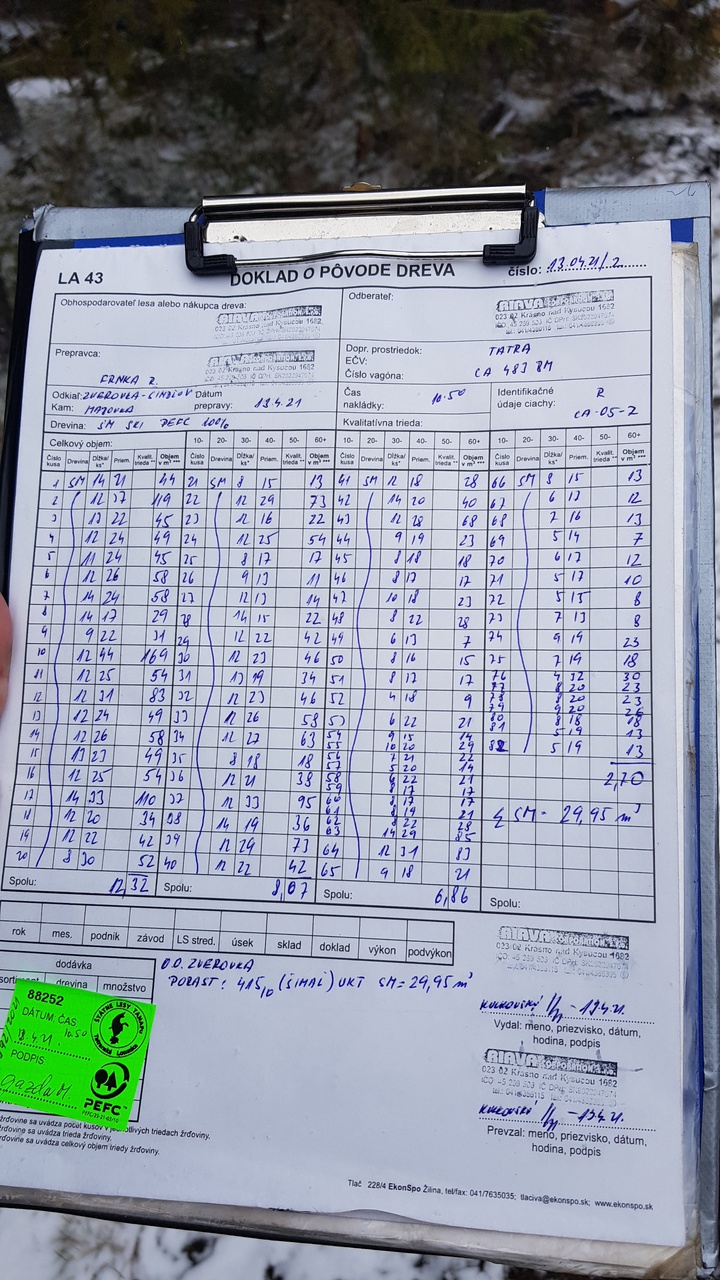 LA 43
DOKLAD O PÔVODE DREVA
číslo: 13.04.21/2
Obhospodarovateľ lesa alebo nákupca dreva:
Odberateľ:
023 02 Krásno nad Kysucou 1682
023 02 Krásno nad Kysucou 1682
Prepravca:
Dopr. prostriedok: TATRA
EČV:
Číslo vagóna: CA 483 BM
Odkiaľ: ZVEROVKA-
Kam:
Dátum prepravy: 13.4.21
Čas nakládky: 10.50
Identifikačné údaje ciachy: R CA-05-2
Drevina: SM SKI PEFC 100%
Kvalitatívna trieda:
Celkový objem: 10- 20- 30- 40- 50- 60+ 10- 20- 30- 40- 50- 60+
Číslo kusa Drevina Dĺžka/ks* Priem. Kvalit. trieda ** Objem v m³ ***
1 SM 14 21 44 21 SM 8 15 13 41 SM 12 18 28 66 SM 8 15 13
2 12 37 119 22 12 29 73 42 14 20 40 67 6 17 12
3 13 22 45 23 12 16 22 43 12 28 68 68 7 16 13
4 12 24 49 24 12 25 54 44 9 19 23 69 5 14 7
5 11 24 45 25 8 17 17 45 8 18 18 70 6 17 12
6 12 26 58 26 9 13 11 46 8 17 17 71 5 17 10
7 14 24 58 27 12 13 14 47 10 18 23 72 5 15 8
8 14 17 29 28 14 15 22 48 8 22 28 73 7 13 8
9 22 31 29 12 22 42 49 6 13 7 74 9 19 23
10 12 44 169 30 12 23 46 50 8 16 15 75 7 19 18
11 12 25 54 31 13 19 34 51 8 17 17 76 4 32 30
77 8 20 23
12 12 31 83 32 12 23 46 52 4 18 9 78 8 20 23
79 9 20 26
13 12 24 49 33 12 26 58 53 6 22 21 80 8 18 18
14 12 26 58 34 12 27 63 54 9 15 14 81 5 19 13
55 10 20 29 82 5 19 13
15 13 23 49 35 8 18 18 56 7 21 22
57 5 20 14
16 12 25 54 36 12 21 38 58 6 22 21 2,70
59 8 17 17
17 14 33 110 37 12 33 95 60 8 17 17
61 8 19 21 Σ SM - 29,95 m³
18 12 20 34 38 14 19 36 62 8 22 28
63 14 29 85
19 12 22 42 39 12 29 73 64 12 31 83
20 8 30 52 40 12 22 42 65 9 18 21
Spolu: 12,32 Spolu: 8,07 Spolu: 6,86 Spolu:
rok mes. podnik závod LS stred. úsek sklad doklad výkon podvýkon
023 02 Krásno nad Kysucou 1682
dodávka
drevina množstvo
O.O. ZVEROVKA
PORAST: 415 (ŠIMAĽ) UKT SM = 29,95 m³
Vydal: meno, priezvisko, dátum,
hodina, podpis
023 02 Krásno nad Kysucou 1682
Prevzal: meno, priezvisko, dátum,
hodina, podpis
88252
DÁTUM: ČAS
10.50
PODPIS
Gazda M.
ŠTÁTNE LESY TANAPu
PEFC
žrďovine sa uvádza počet kusov v jednotlivých triedach žrďoviny.
žrďovine sa uvádza trieda žrďoviny.
žrďovine sa uvádza celkový objem triedy žrďoviny.
Tlač 228/4 EkonSpo Žilina, tel/fax: 041/7635035; tlaciva@ekonspo.sk; www.ekonspo.sk